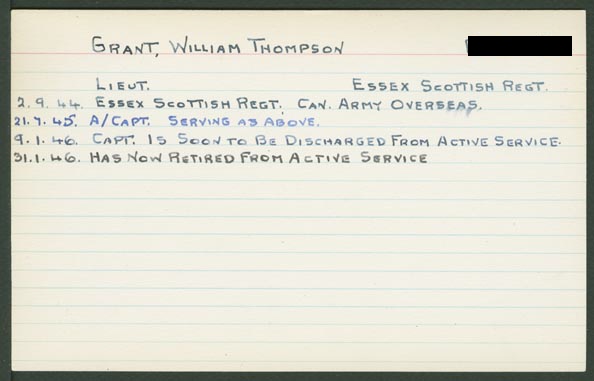 GRANT, WILLIAM THOMPSON
LIEUT. ESSEX SCOTTISH REGT.
2.9.44. ESSEX SCOTTISH REGT. CAN. ARMY OVERSEAS.
21.7.45. A/CAPT. SERVING AS ABOVE.
9.1.46. CAPT. IS SOON TO BE DISCHARGED FROM ACTIVE SERVICE.
31.1.46. HAS NOW RETIRED FROM ACTIVE SERVICE